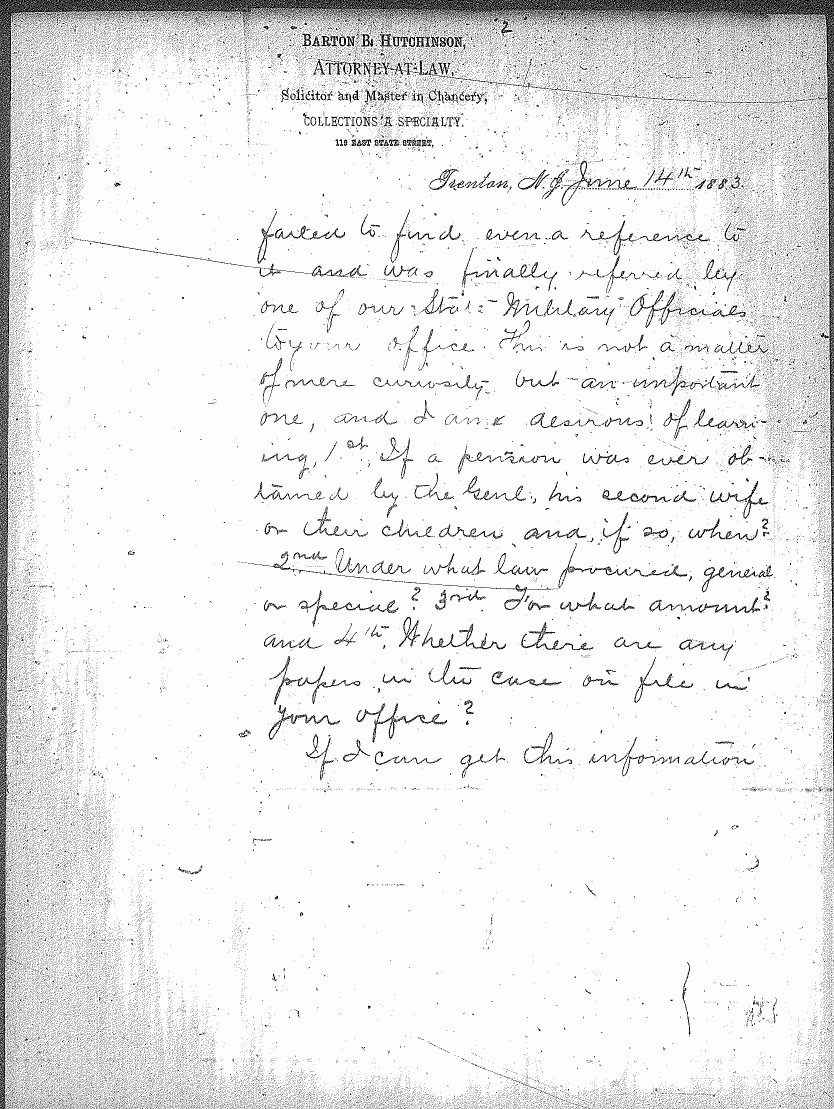 2
BARTON B. HUTCHINSON,
ATTORNEY-AT-LAW,
Solicitor and Master in Chancery,
COLLECTIONS A SPECIALTY.
119 EAST STATE STREET,
Trenton, N.J. June 14th 1883.
failed to find even a reference to
it and was finally referred by
one of our State Military Officials
to your office. This is not a matter
of mere curiosity but an important
one, and I am desirous of learn-
ing, 1st, If a pension was ever ob-
tained by the Genl., his second wife
or their children and, if so, when?
2nd. Under what law procured, general
or special? 3rd. For what amount?
and 4th. Whether there are any
papers in the case on file in
your office?
If I can get this information